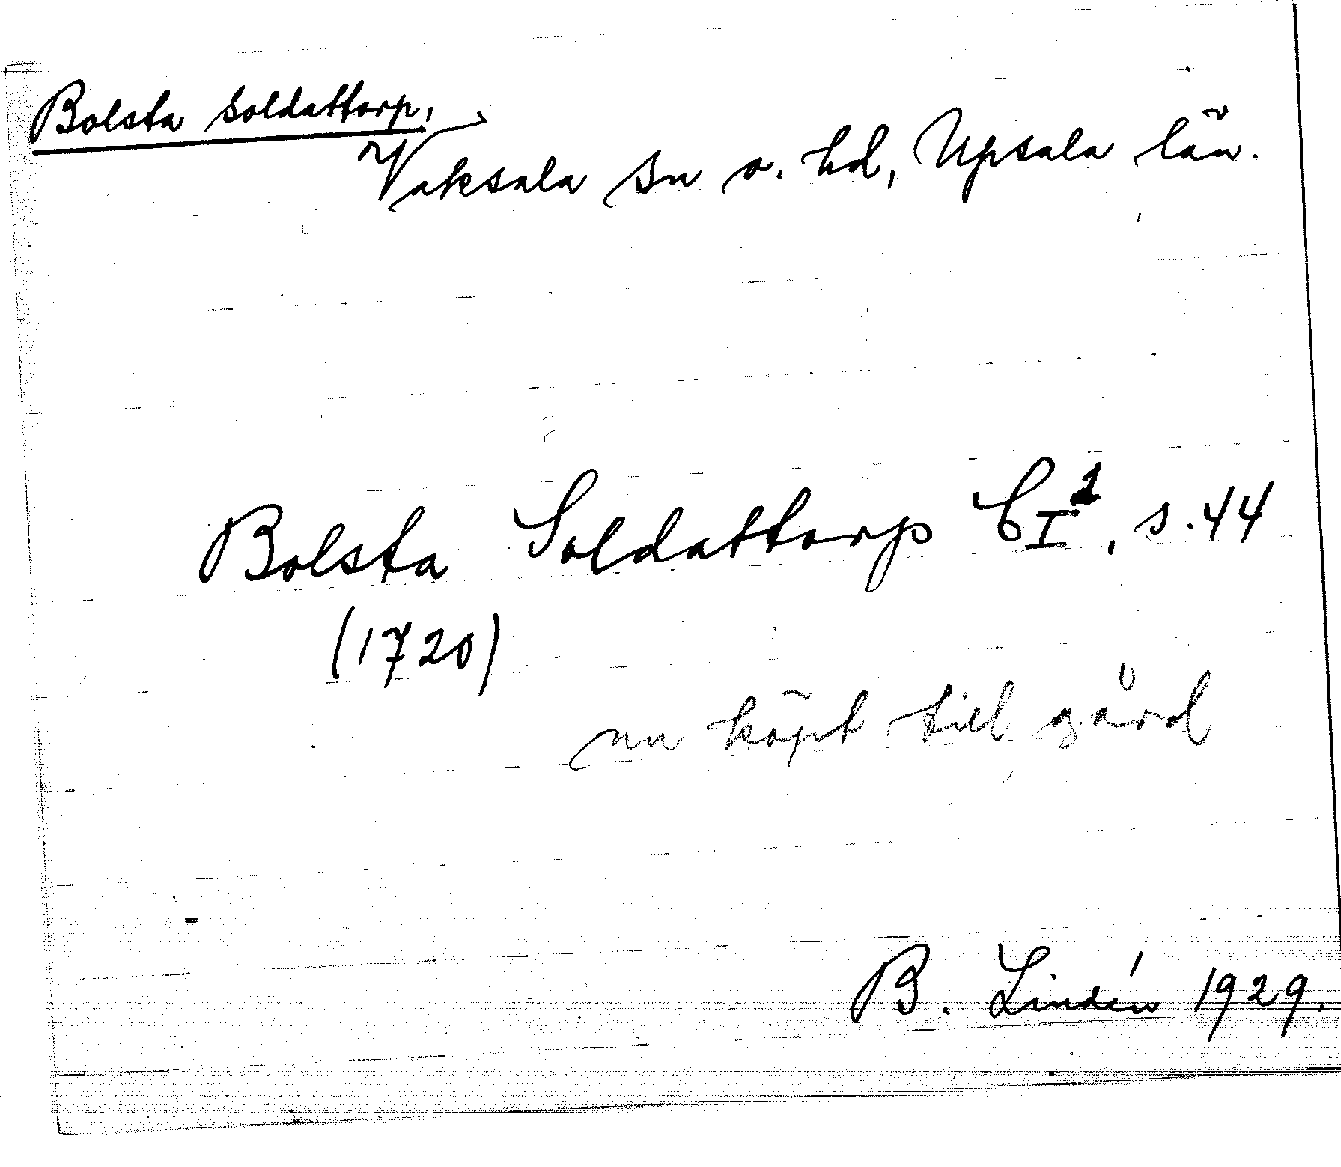 Bolsta Soldattorp,
Vaksala sn o. hd, Upsala län.
Bolsta Soldattorp CI², s. 44
(1720)
nu köpt till gård
B. Lindén 1929.